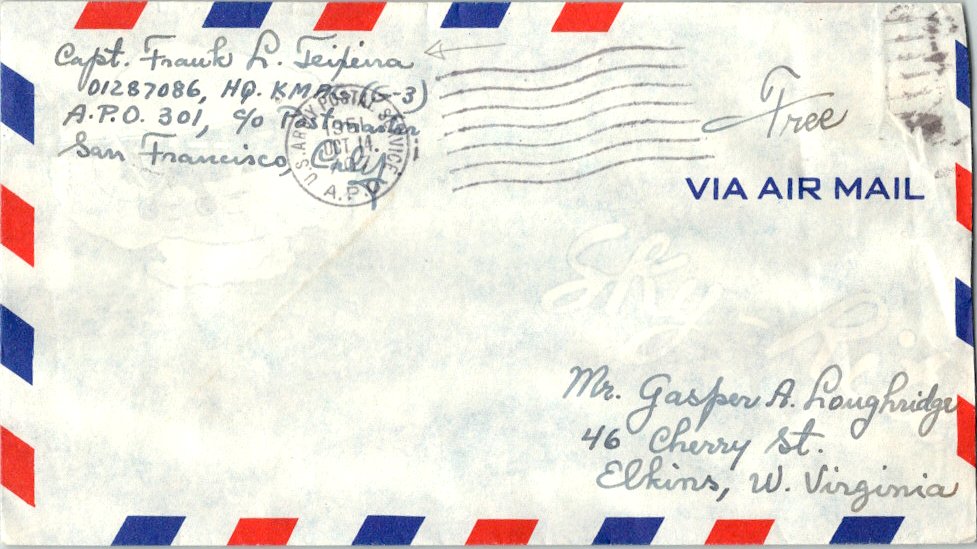 Capt. Frank L. Teixeira
01287086, HQ. KMAG (G-3)
A.P.O. 301, c/o Postmaster
San Francisco, Calif.
U.S. ARMY POSTAL SERVICE
1951
OCT 14
A.P.O.
Free
VIA AIR MAIL
Sky-Rite
Mr. Gasper A. Loughridge
46 Cherry St.
Elkins, W. Virginia